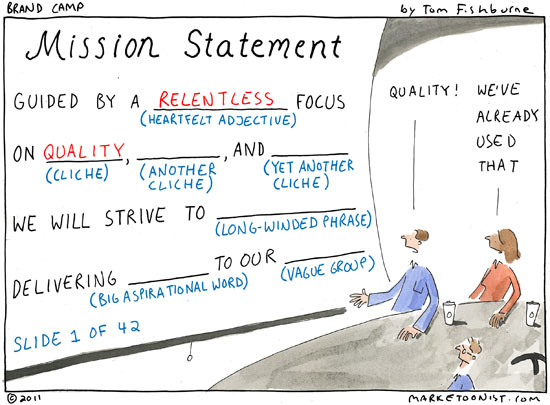 BRAND CAMP
by Tom Fishburne
Mission Statement
GUIDED BY A RELENTLESS FOCUS
(HEARTFELT ADJECTIVE)
ON QUALITY, ________, AND ________
(CLICHE) (ANOTHER CLICHE) (YET ANOTHER CLICHE)
WE WILL STRIVE TO ________
(LONG-WINDED PHRASE)
DELIVERING ________ TO OUR ________
(BIG ASPIRATIONAL WORD) (VAGUE GROUP)
SLIDE 1 OF 42
QUALITY!
WE'VE
ALREADY
USED
THAT
© 2011
MARKETOONIST.COM